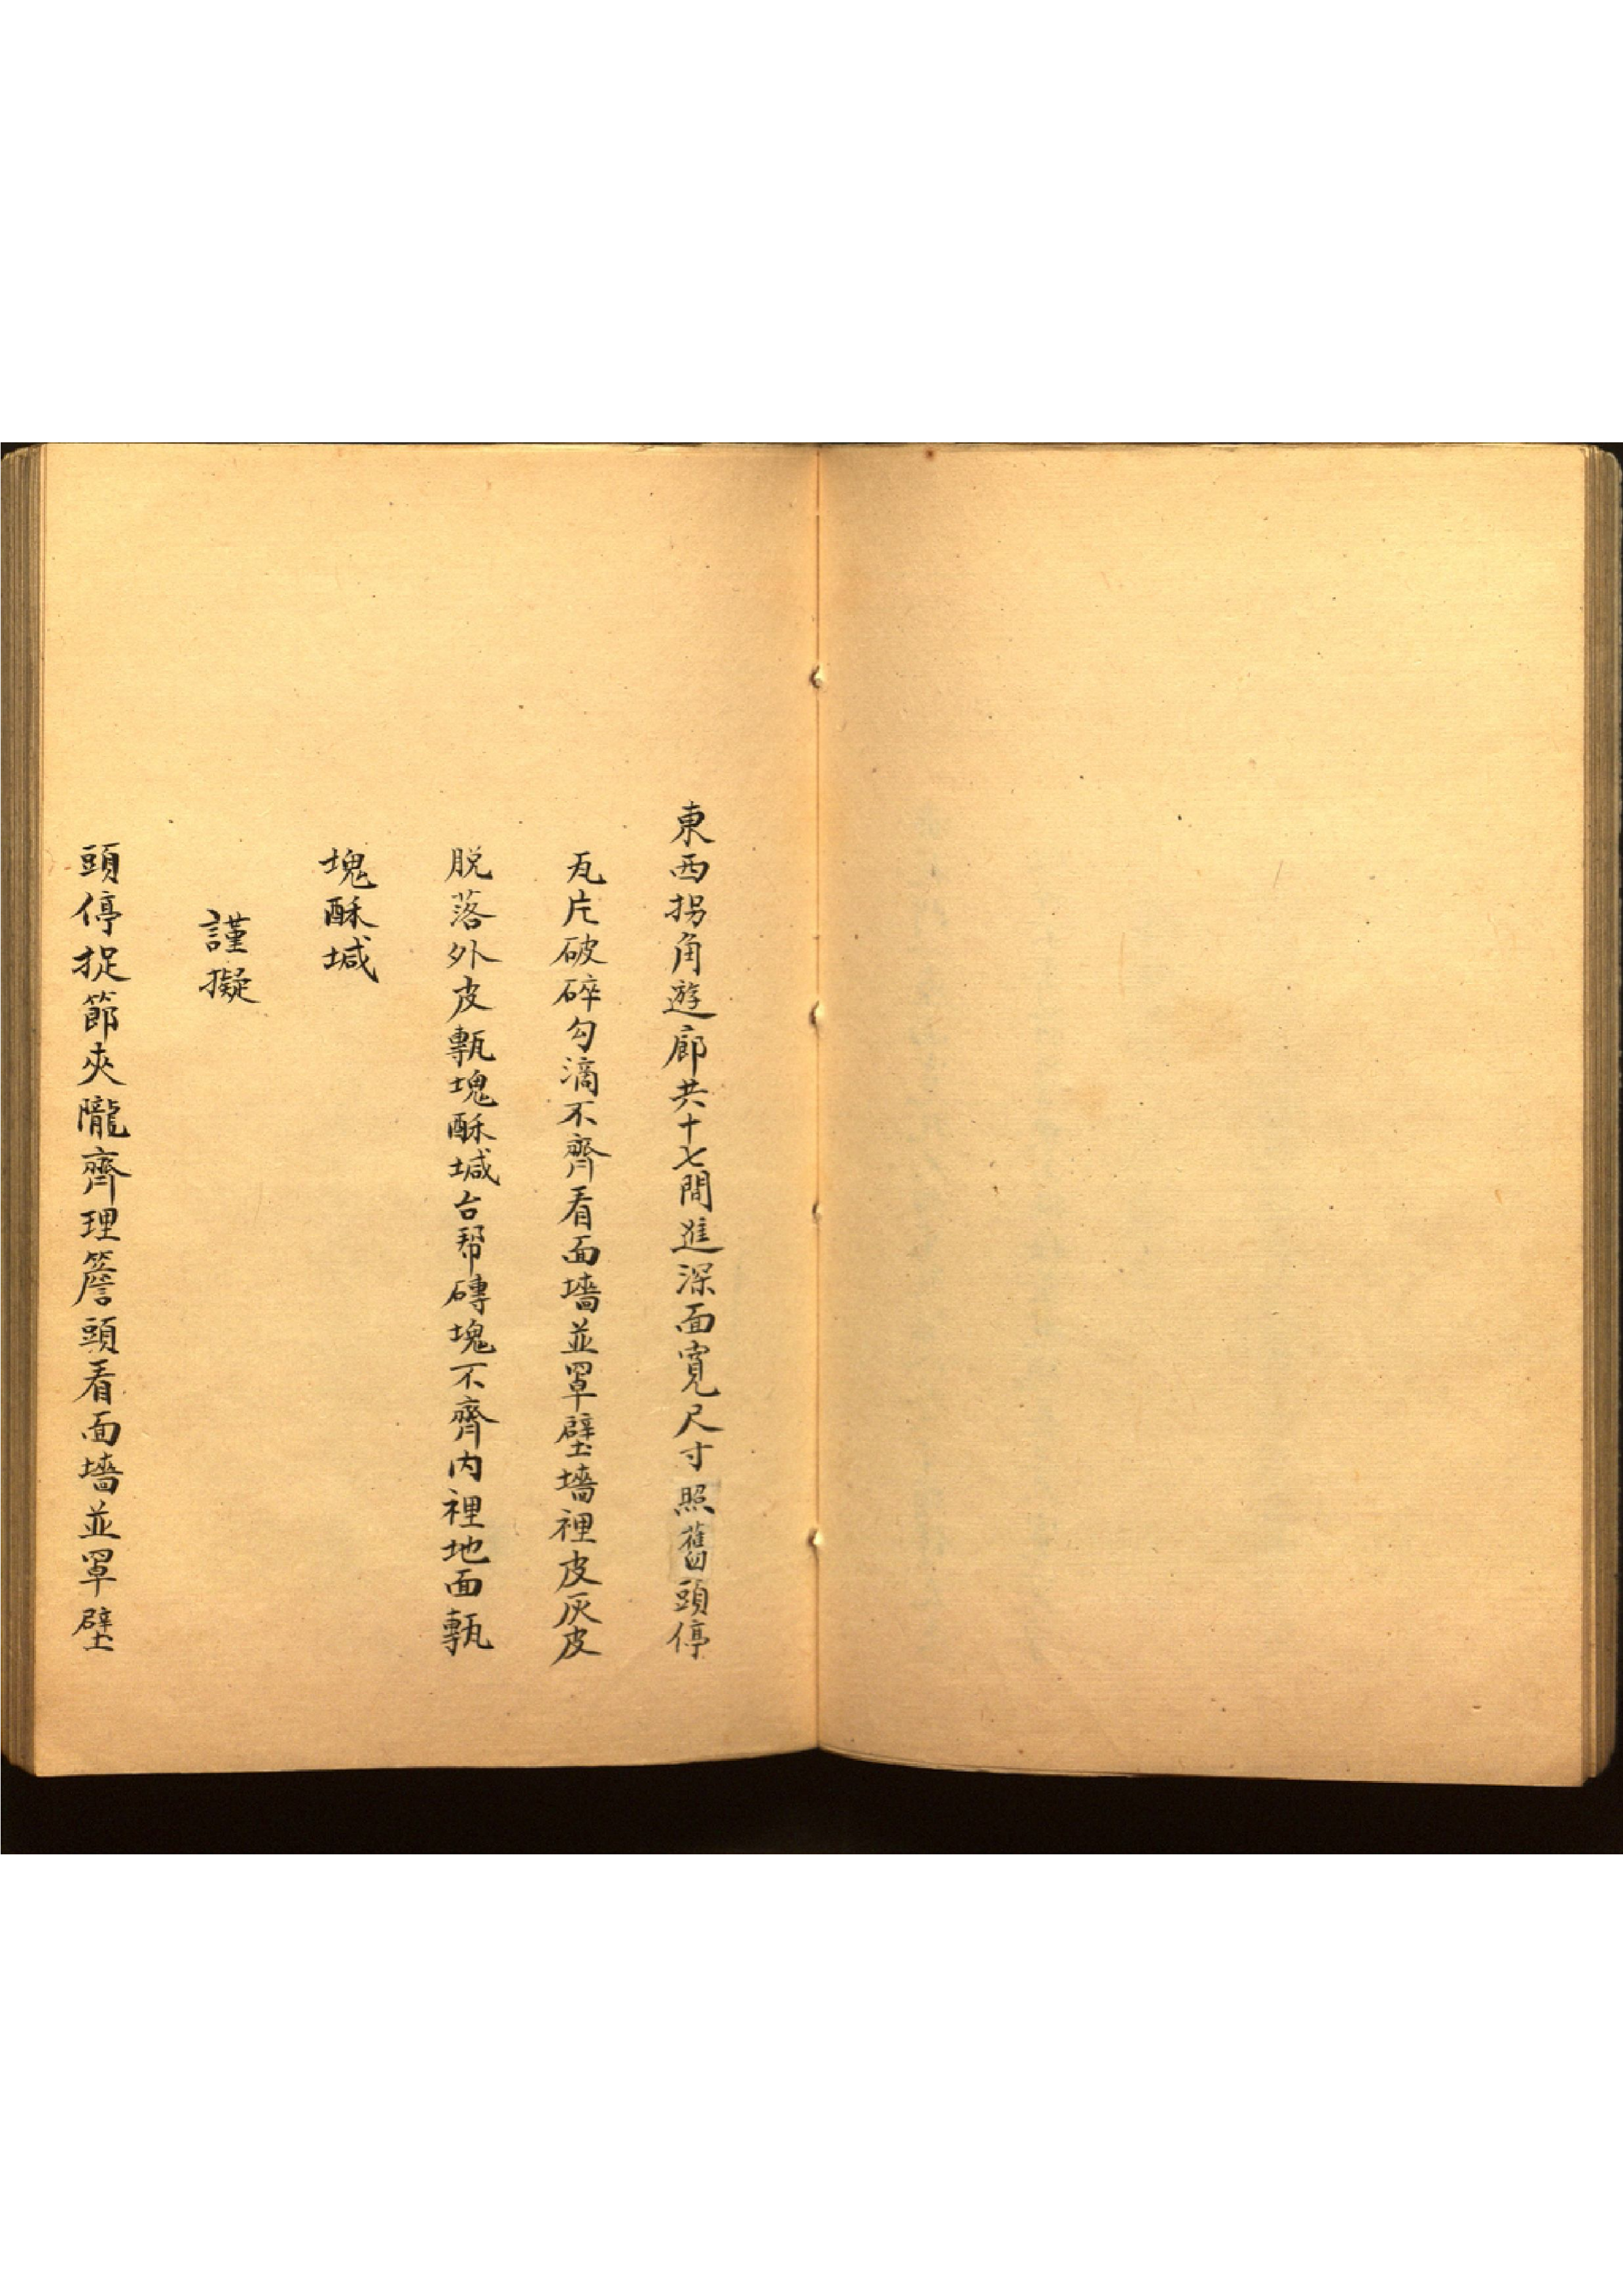 東西拐角遊廊共十七間進深面寬尺寸照舊頭停
瓦片破碎勾滴不齊看面墻並罩壁墻裡皮灰皮
脱落外皮甎塊酥堿台帮磚塊不齊内裡地面甎
塊酥堿
謹擬
頭停捉節夾隴齊理簷頭看面墻並罩壁